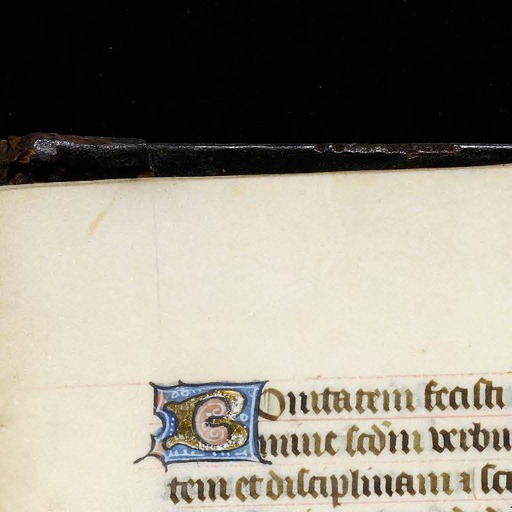 BOnitatem fecisti
mine scd̄m verbu
tem et disciplinam ⁊ sci